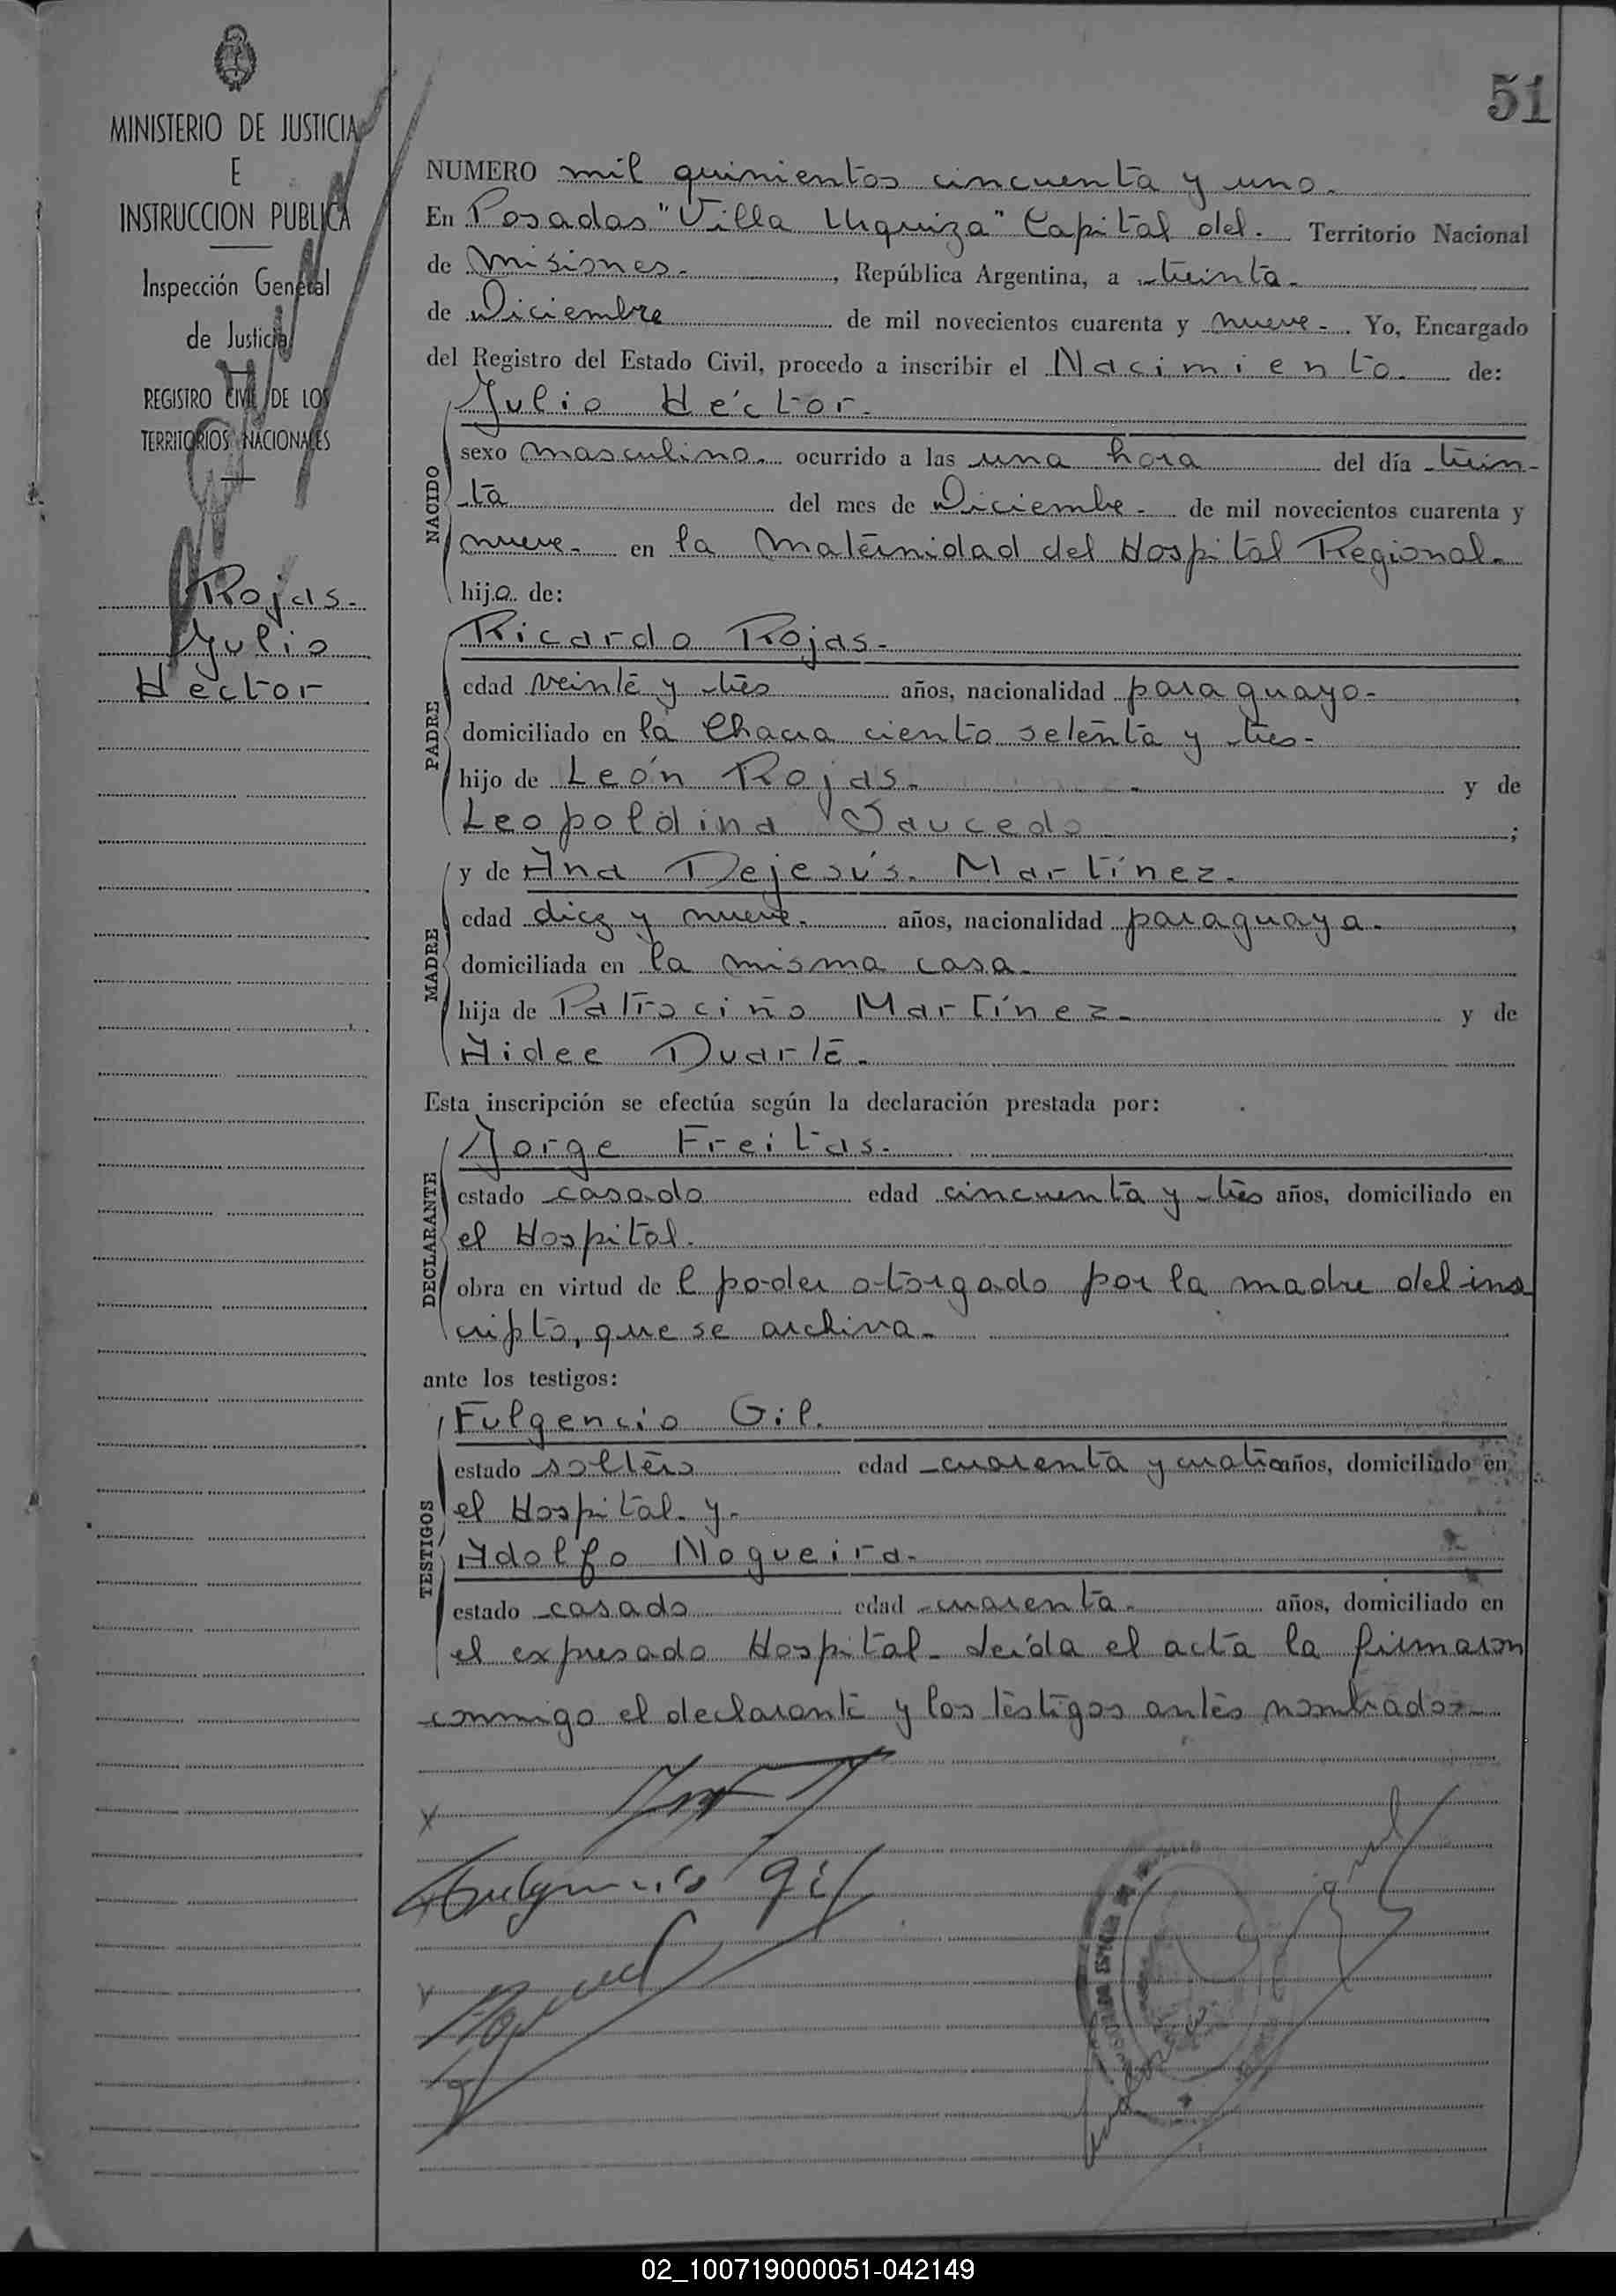 51
MINISTERIO DE JUSTICIA
E
INSTRUCCION PUBLICA
Inspección General
de Justicia
REGISTRO CIVIL DE LOS
TERRITORIOS NACIONALES
Rojas.
Julio
Hector
NUMERO mil quinientos cincuenta y uno.
En Posadas "Villa Urquiza" Capital del. Territorio Nacional
de Misiones. , República Argentina, a treinta.
de Diciembre de mil novecientos cuarenta y nueve. Yo, Encargado
del Registro del Estado Civil, procedo a inscribir el Nacimiento. de:
NACIDO
Julio Héctor.
sexo masculino. ocurrido a las una hora del día trein-
ta del mes de Diciembre. de mil novecientos cuarenta y
nueve. en la Maternidad del Hospital Regional.
hijo de:
PADRE
Ricardo Rojas.
edad veinte y tres años, nacionalidad paraguayo.
domiciliado en la Chacra ciento setenta y tres.
hijo de León Rojas. y de
Leopoldina Saucedo ;
MADRE
y de Ana Dejesús. Martínez.
edad diez y nueve. años, nacionalidad paraguaya. ,
domiciliada en la misma casa.
hija de Patrocinio Martínez. y de
Aidee Duarte.
Esta inscripción se efectúa según la declaración prestada por:
DECLARANTE
Jorge Freitas.
estado casado edad cincuenta y tres años, domiciliado en
el Hospital.
obra en virtud de l poder otorgado por la madre del ins
cripto, que se archiva.
ante los testigos:
TESTIGOS
Fulgencio Gil.
estado soltero edad cuarenta y cuatro años, domiciliado en
el Hospital. y.
Adolfo Nogueira.
estado casado edad cuarenta. años, domiciliado en
el expresado Hospital. Leída el acta la firmaron
conmigo el declarante y los testigos antes nombrados.
Fulgencio Gil
02_100719000051-042149